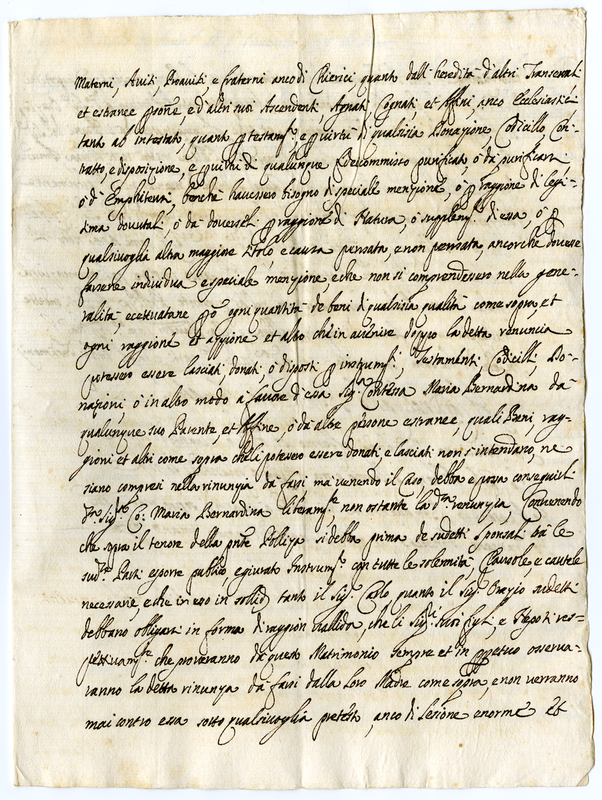 Materni, Aviti, Proaviti, e fraterni anco di Chierici quanto dall'heredità d'altri Transversali
et estranee p̱sone, e d'altri suoi Ascendenti, Agnati, Cognati et Affini, anco Ecclesiastici
tanto ab intestato, quanto p̱ testamᵗᵒ, e p̱ virtù di qualsisia Donazione, Codicillo, Con-
tratto, e disposizione, e p̱ virtù di qualunque Fidecommisso purificato, ò da purificarsi
ò d'Emphiteusi, benche havessero bisogno di speciale menzione, ò p̱ raggione di Legi-
tima dovutali, ò da doverseli p̱ raggione di Natura, ò supplemᵗᵒ di essa, ò p̱
qualsivoglia altro maggiore titolo e causa pensata, e non pensata, ancorche dovesse
farsene individua e speciale menzione, e che non si comprendessero nella gene-
ralità, eccettuatane p̱ò ogni quantità de beni di qualsisia qualità come sopra, et
ogni raggione et azzione et altro che in avenire doppo la detta renuncia
potessero essere lasciati, donati, ò disposti p̱ instrumᵗⁱ, Testamenti, Codicilli, Do-
nazioni, ò in altro modo à favore d'essa Sigʳᵃ Contessa Maria Bernardina da
qualunque suo Parente, et Affine, ò da altre p̱sone estranee, quali Beni, rag-
gioni et altri come sopra che li potessero essere donati, e lasciati non s'intendano, ne
siano compresi nella rinunzia da farsi ma venendo il caso debba e possa conseguirli
dᵃ Sigʳᵃ Coⁿᵗ Maria Bernardina liberamᵗᵉ non ostante la dᵃ renunzia, Convenendo
che sopra il tenore della pñte Polliza si debba prima de sudetti Sponsali trà le
sudᵉ Parti esporre publico e giurato Instrumᵗᵒ con tutte le solennità, Clausole, e cautele
necessarie, e che in esso in solidᵘ tanto il Sigʳ Carlo quanto il Sigʳ Orazio sudetti
debbano obligarsi in forma di raggion vallida, che li Sigʳⁱ suoi figli, e Nepoti res-
pettivamᵗᵉ che proveranno da questo Matrimonio sempre et in p̱petuo osserva-
ranno la detta rinunza da farsi dalla loro Madre come sopra, e non verranno
mai contro essa sotto qualsivoglia pretesto, anco di lesione enorme et